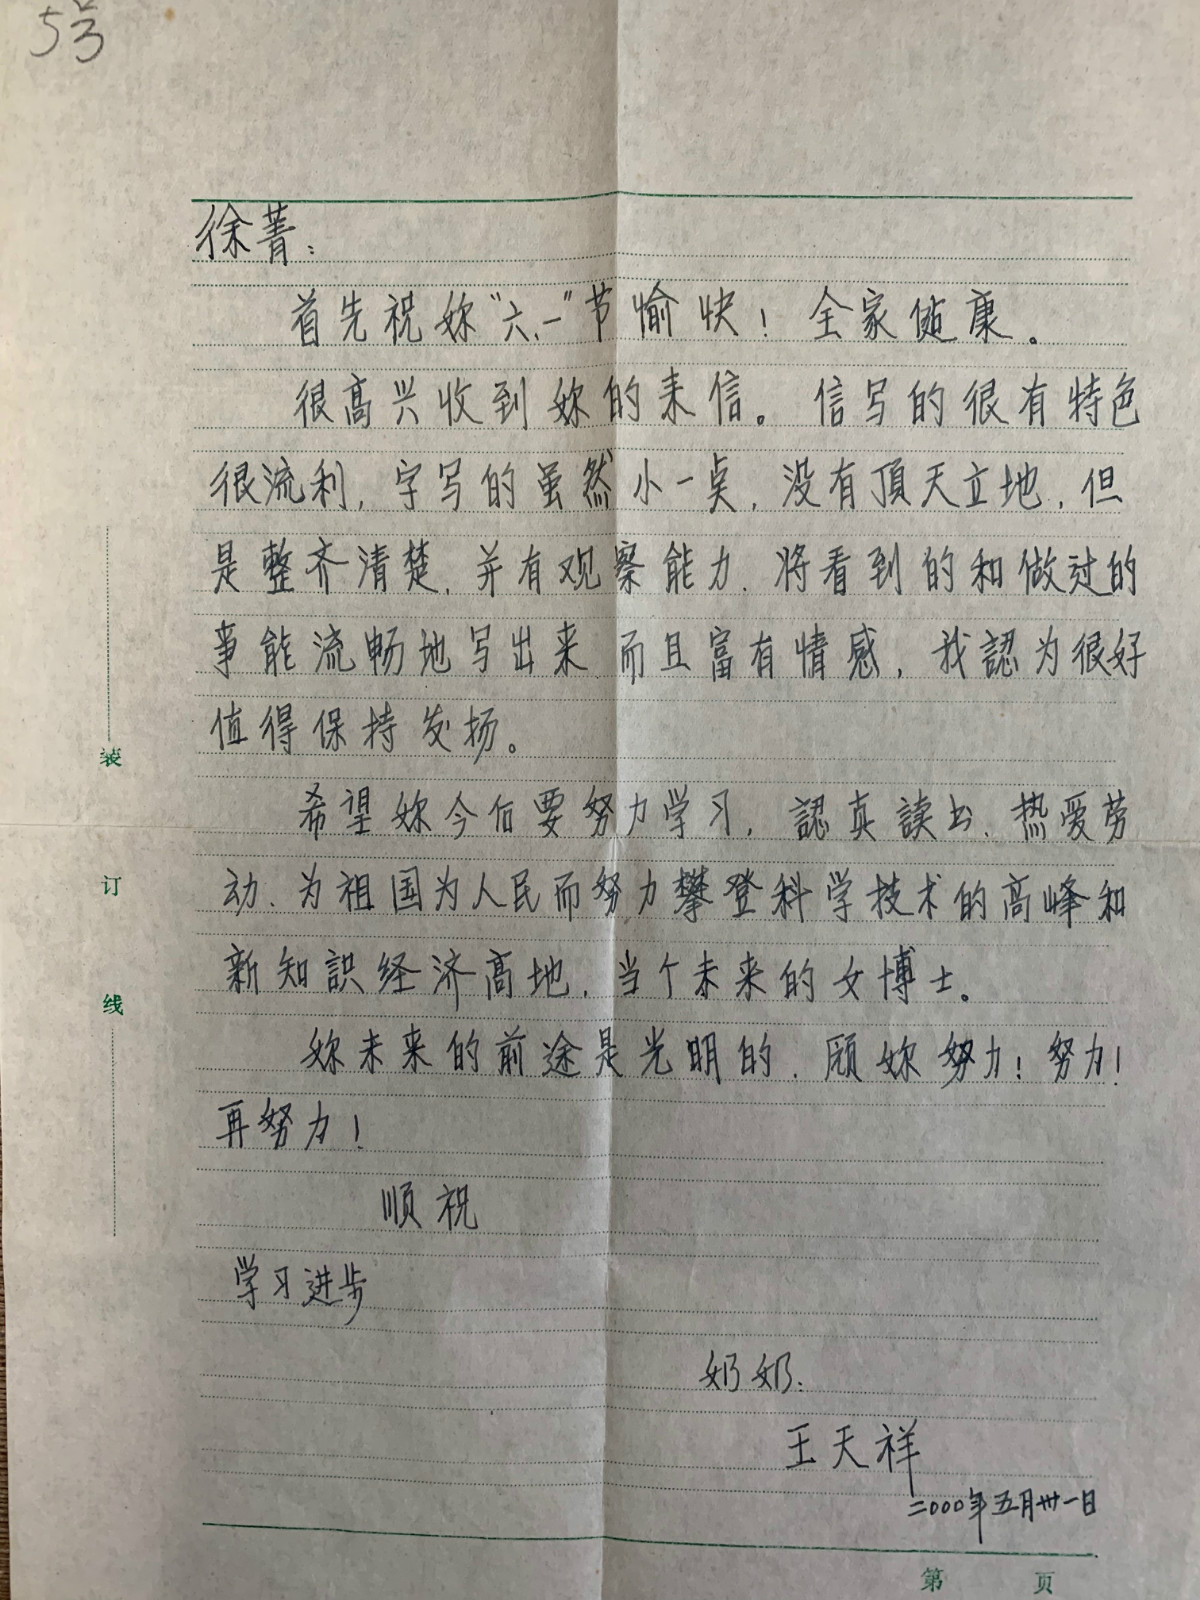 5号
徐菁：
首先祝妳“六.一”节愉快！全家健康。
很高兴收到妳的来信。信写的很有特色
很流利，字写的虽然小一点，没有頂天立地，但
是整齐清楚，并有观察能力，将看到的和做过的
事能流畅地写出来 而且富有情感，我認为很好
值得保持发扬。
希望妳今后要努力学习，認真读书、热爱劳
动、为祖国为人民而努力攀登科学技术的高峰和
新知識经济高地，当个未来的女博士。
妳未来的前途是光明的，願妳努力！努力！
再努力！
顺祝
学习进步
奶奶：
王天祥
二000年五月卅一日
装
订
线
第 页